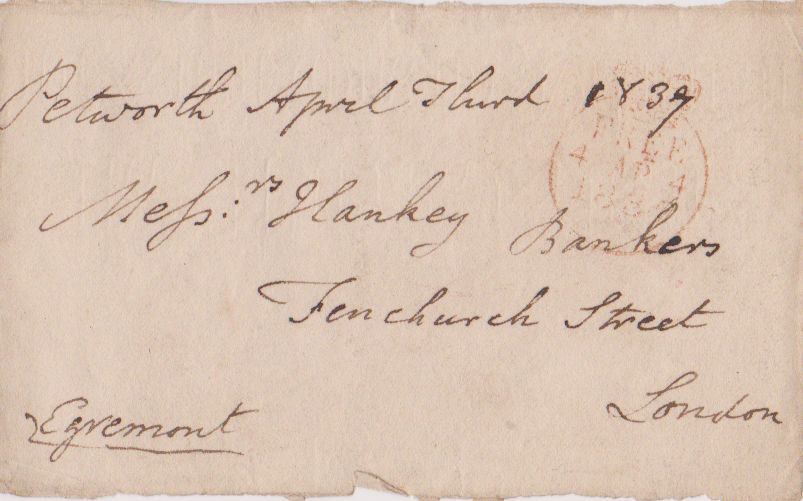 Petworth April Third 1837
Messrs: Hankey Bankers
Fenchurch Street
London
Egremont